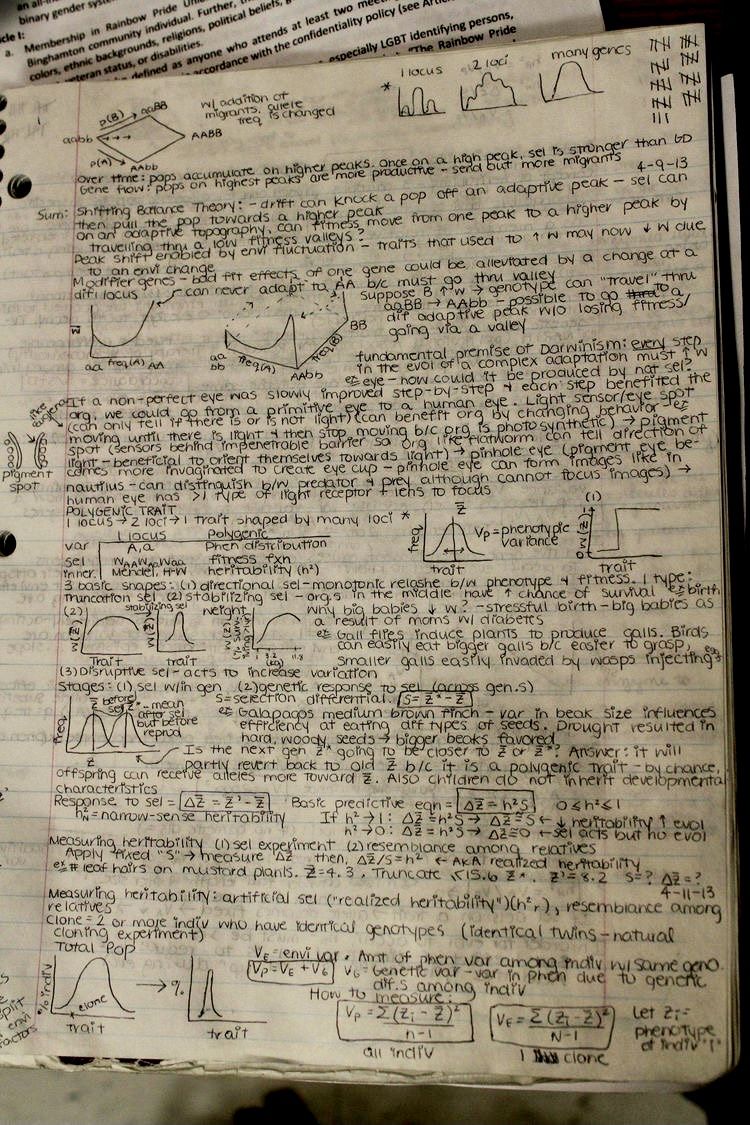 binary gender
a. Membership in Rainbow Pride
Binghamton community individual. Further,
colors, ethnic backgrounds, religions, political beliefs,
veteran status, or disabilities.
be defined as anyone who attends at least two
accordance with the confidentiality policy (see
especially LGBT identifying persons,
"The Rainbow Pride
1 locus 2 loci many genes
*
P(B) aaBB
aabb AABB
P(A) AAbb
w/ addition of
migrants, allele
freq is changed
over time: pops accumulate on higher peaks. once on a high peak, sel is stronger than GD
Gene flow: pops on highest peaks are more productive - send out more migrants 4-9-13
Sum: Shifting Balance Theory: - drift can knock a pop off an adaptive peak - sel can
then pull the pop towards a higher peak
on an adaptive topography, can fitness move from one peak to a higher peak by
travelling thru a low fitness valleys?
Peak shift enabled by envi fluctuation - traits that used to ↑ w may now ↓ w due
to an envi change
Modifier genes - bad fit effects of one gene could be alleviated by a change at a
difi locus can never adapt to AA b/c must go thru valley
suppose B ↑ w → genotype can "travel" thru
aaBB → AAbb - possible to go to a
dif adaptive peak w/o losing fitness/
going via a valley
aa freq(A) AA
aa bb freq(A) AAbb freq(B) BB
fundamental premise of Darwinism: every step
in the evol of a complex adaptation must ↑ w
ex eye - how could it be produced by nat sel?
If a non-perfect eye was slowly improved step-by-step & each step benefited the
org, we could go from a primitive eye to a human eye. Light sensor/eye spot
(can only tell if there is or is not light) (can benefit org by changing behavior - ex
moving until there is light & then stop moving b/c org is photosynthetic) → pigment
spot (sensors behind impenetrable barrier so org like flatworm can tell direction of
light - beneficial to orient themselves towards light) → pinhole eye (pigment eye be-
comes more invaginated to create eye cup - pinhole eye can form images like in
nautilus - can distinguish b/w predator & prey although cannot focus images) →
human eye has >1 type of light receptor + lens to focus
pigment
spot
POLYGENIC TRAIT
1 locus → 2 loci → 1 trait shaped by many loci *
1 locus Polygenic
var A,a Phen distribution
sel WAA WAa Waa fitness fxn
inher. Mendel, H-W heritability (h²)
freq z̄ Vp = phenotypic
variance
trait
(1)
trait
3 basic shapes: (1) directional sel - monotonic relashe b/w phenotype & fitness. 1 type:
truncation sel (2) stabilizing sel - org.s in the middle have ↑ chance of survival ex birth
(2) stabilizing sel height why big babies ↓ w? - stressful birth - big babies as
a result of moms w/ diabetes
ex Gall flies induce plants to produce galls. Birds
can easily eat bigger galls b/c easier to grasp,
smaller galls easily invaded by wasps injecting
Trait trait
(3) Disruptive sel - acts to increase variation
Stages: (1) sel w/in gen (2) genetic response to sel (across gen.s)
S = selection differential. S = z̄* - z̄
before sel z̄* - mean
after sel
but before
reprod
freq
z̄
ex Galapagos medium brown finch - var in beak size influences
efficiency at eating dif types of seeds. Drought resulted in
hard, woody seeds → bigger beaks favored
Is the next gen z̄' going to be closer to z̄ or z̄*? Answer: it will
partly revert back to old z̄ b/c it is a polygenic trait - by chance,
offspring can receive alleles more toward z̄. Also children do not inherit developmental
characteristics
Response to sel = Δz̄ = z̄' - z̄ Basic predictive eqn = Δz̄ = h²S 0≤h²≤1
h² = narrow-sense heritability If h² → 1: Δz̄ = h²S → Δz̄ ≅ S ← ↓ heritability ↑ evol
h² → 0: Δz̄ = h²S → Δz̄ ≅ 0 ← sel acts but no evol
Measuring heritability (1) sel experiment (2) resemblance among relatives
Apply fixed "S" → measure Δz̄ then, Δz̄/S = h² ← AKA realized heritability
ex # leaf hairs on mustard plants. z̄ = 4.3, Truncate <15.6 z̄*. z̄' = 8.2 S=? Δz̄=?
4-11-13
Measuring heritability: artificial sel ("realized heritability") (h²r), resemblance among
relatives
Clone = 2 or more indiv who have identical genotypes (identical twins - natural
cloning experiment)
Total Pop
VE = envi var. Amt of phen var among indiv w/ same geno.
Vp = VE + VG VG = Genetic var - var in phen due to genetic
dif.s among indiv
How to measure:
% indiv clone → %
trait trait
Vp = Σ(zi - z̄)² / n-1
all indiv
VE = Σ(zi - z̄)² / N-1
1 clone
Let zi =
phenotype
of indiv "i"
envi
factors